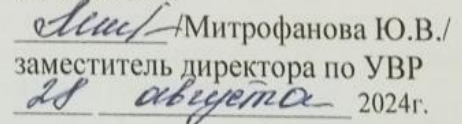 /Митрофанова Ю.В./
заместитель директора по УВР
28 августа 2024г.